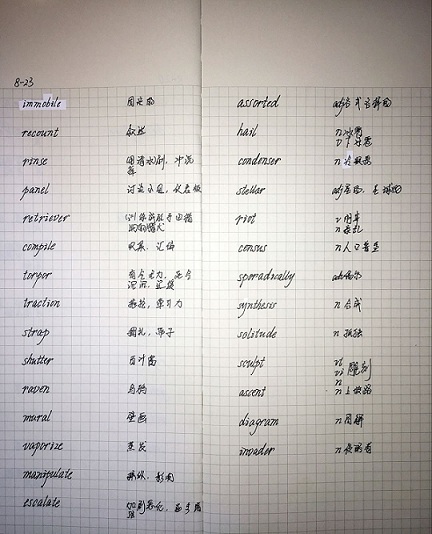 8-23
immobile 固定的
recount 叙述
rinse 用清水刷，冲洗
panel 讨论小组，仪表板
retriever
compile 收集，汇编
torpor
traction 拖拉，牵引力
strap 捆扎，带子
shutter 百叶窗
raven 乌鸦
mural 壁画
vaporize 蒸发
manipulate 操纵，影响
escalate
assorted adj 各式各样的
hail n 冰雹
v 下冰雹
condenser n 冷凝器
stellar adj
riot v
n
census n 人口普查
sporadically adv 偶尔
synthesis n 合成
solitude n 孤独
sculpt vt
vi 雕刻
ascent n
n 上坡路
diagram n 图解
invader n 侵略者